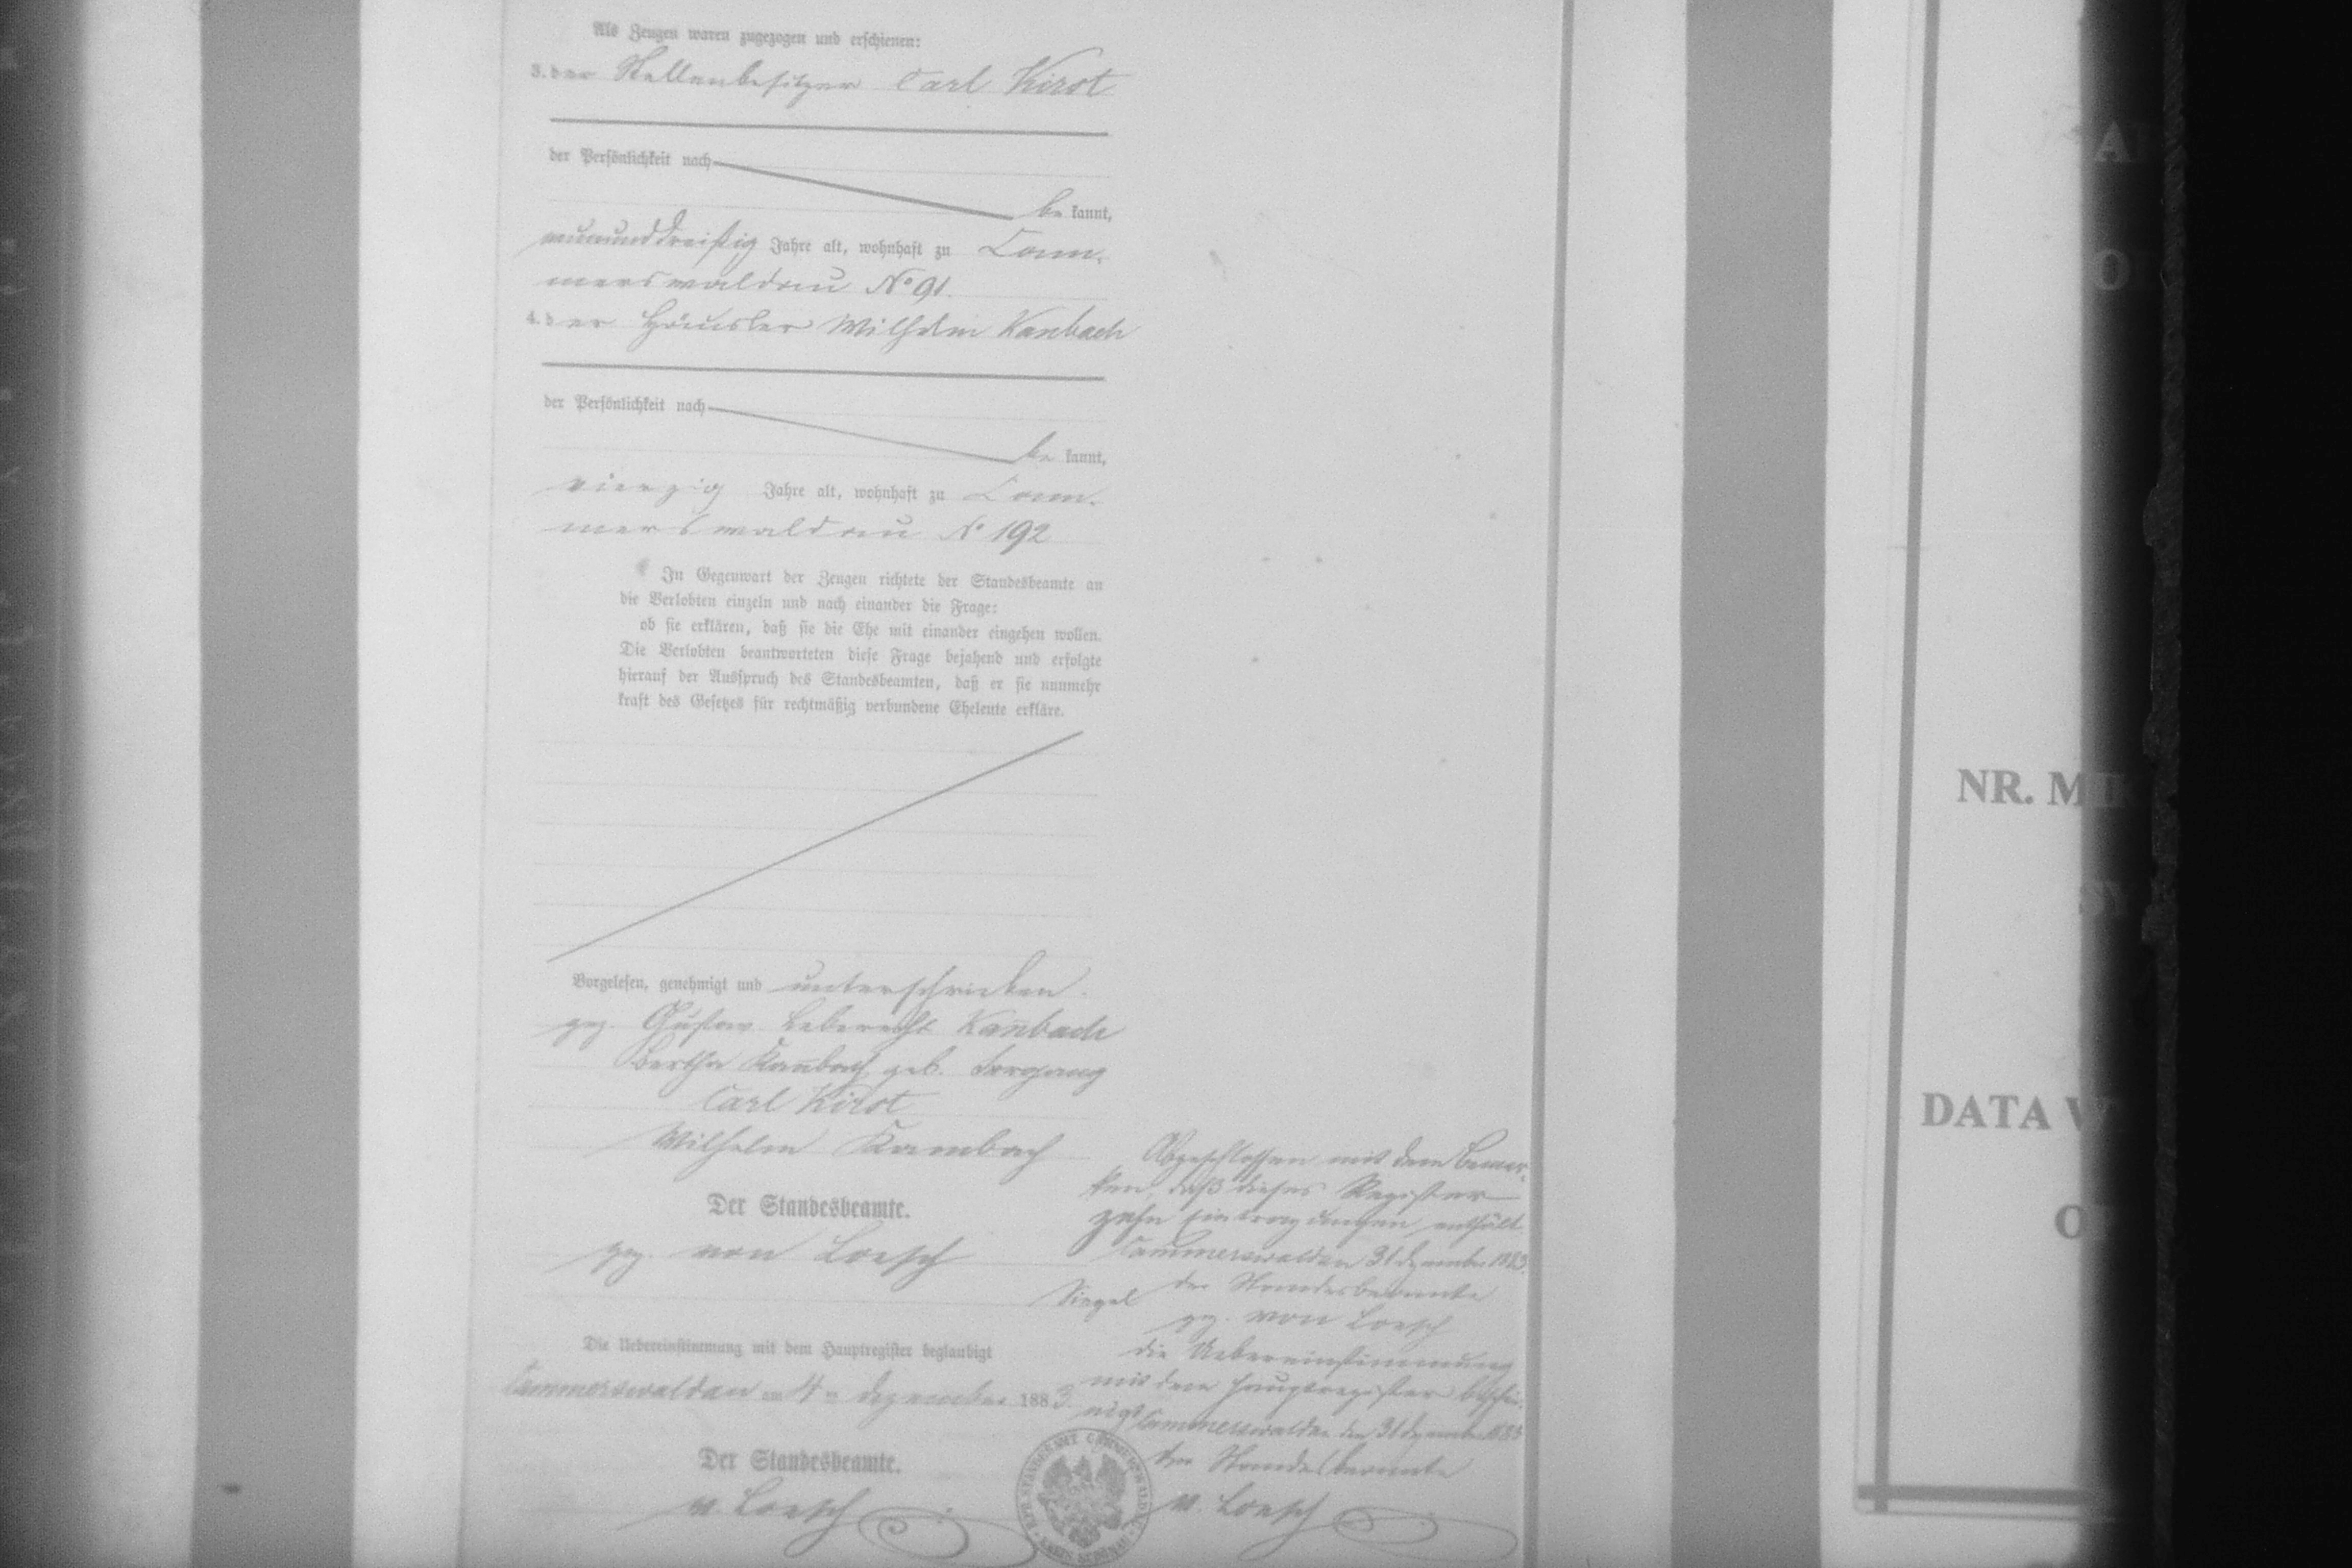 Als Zeugen waren zugezogen und erschienen:
3. der Stellenbesitzer Carl Kirst
der Persönlichkeit nach
be kannt,
neununddreißig Jahre alt, wohnhaft zu Cam-
merswaldau No 91.
4. der Häusler Wilhelm Kanbach
der Persönlichkeit nach
be kannt,
vierzig Jahre alt, wohnhaft zu Cam-
merswaldau No 192
In Gegenwart der Zeugen richtete der Standesbeamte an
die Verlobten einzeln und nach einander die Frage:
ob sie erklären, daß sie die Ehe mit einander eingehen wollen.
Die Verlobten beantworteten diese Frage bejahend und erfolgte
hierauf der Ausspruch des Standesbeamten, daß er sie nunmehr
kraft des Gesetzes für rechtmäßig verbundene Eheleute erkläre.
Vorgelesen, genehmigt und unterschrieben.
gez. Gustav Leberecht Kan̄bach
Bertha Kan̄bach, geb.
Carl Kirst
Wilhelm Kambach
Der Standesbeamte.
gez. von Loesch
Die Uebereinstimmung mit dem Hauptregister beglaubigt
Cammerswaldau am 4 ten Dezember 1883.
Der Standesbeamte.
v. Loesch
Abgeschlossen mit dem Bemer-
ken, daß dieses Register
zehn Eintragungen enthält
Cam̄erswaldau 31 Dezember 1883.
Siegel der Standesbeamte
gez. von Loesch
die Uebereinstimmung
mit dem Hauptregister beschei-
nigt Cammerswaldau den 31 Dezember 1883
der Standesbeamte
v. Loesch
NR. M
DATA W